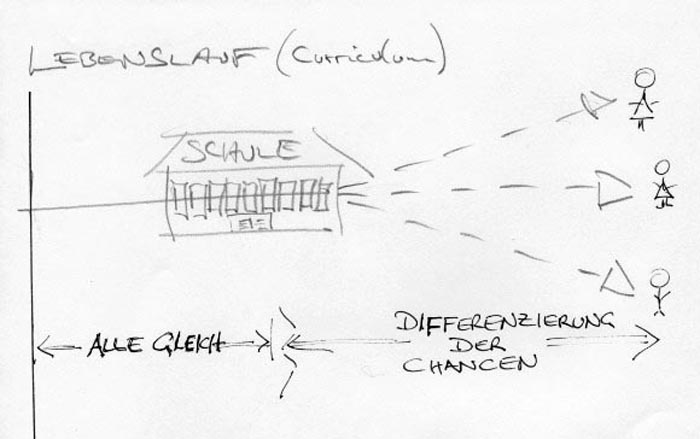 LEBENSLAUF (Curriculum)
SCHULE
ALLE GLEICH
DIFFERENZIERUNG
DER
CHANCEN